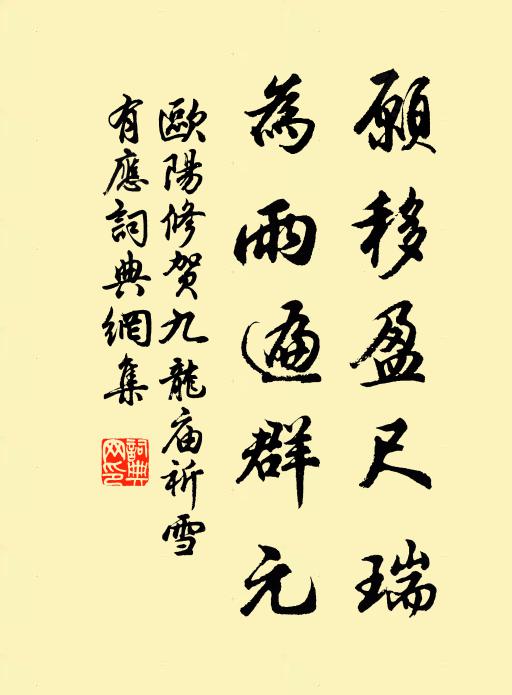 願移盈尺瑞
為雨遍群元
歐陽修賀九龍庙祈雪
有應詞典網集
詞典
网印